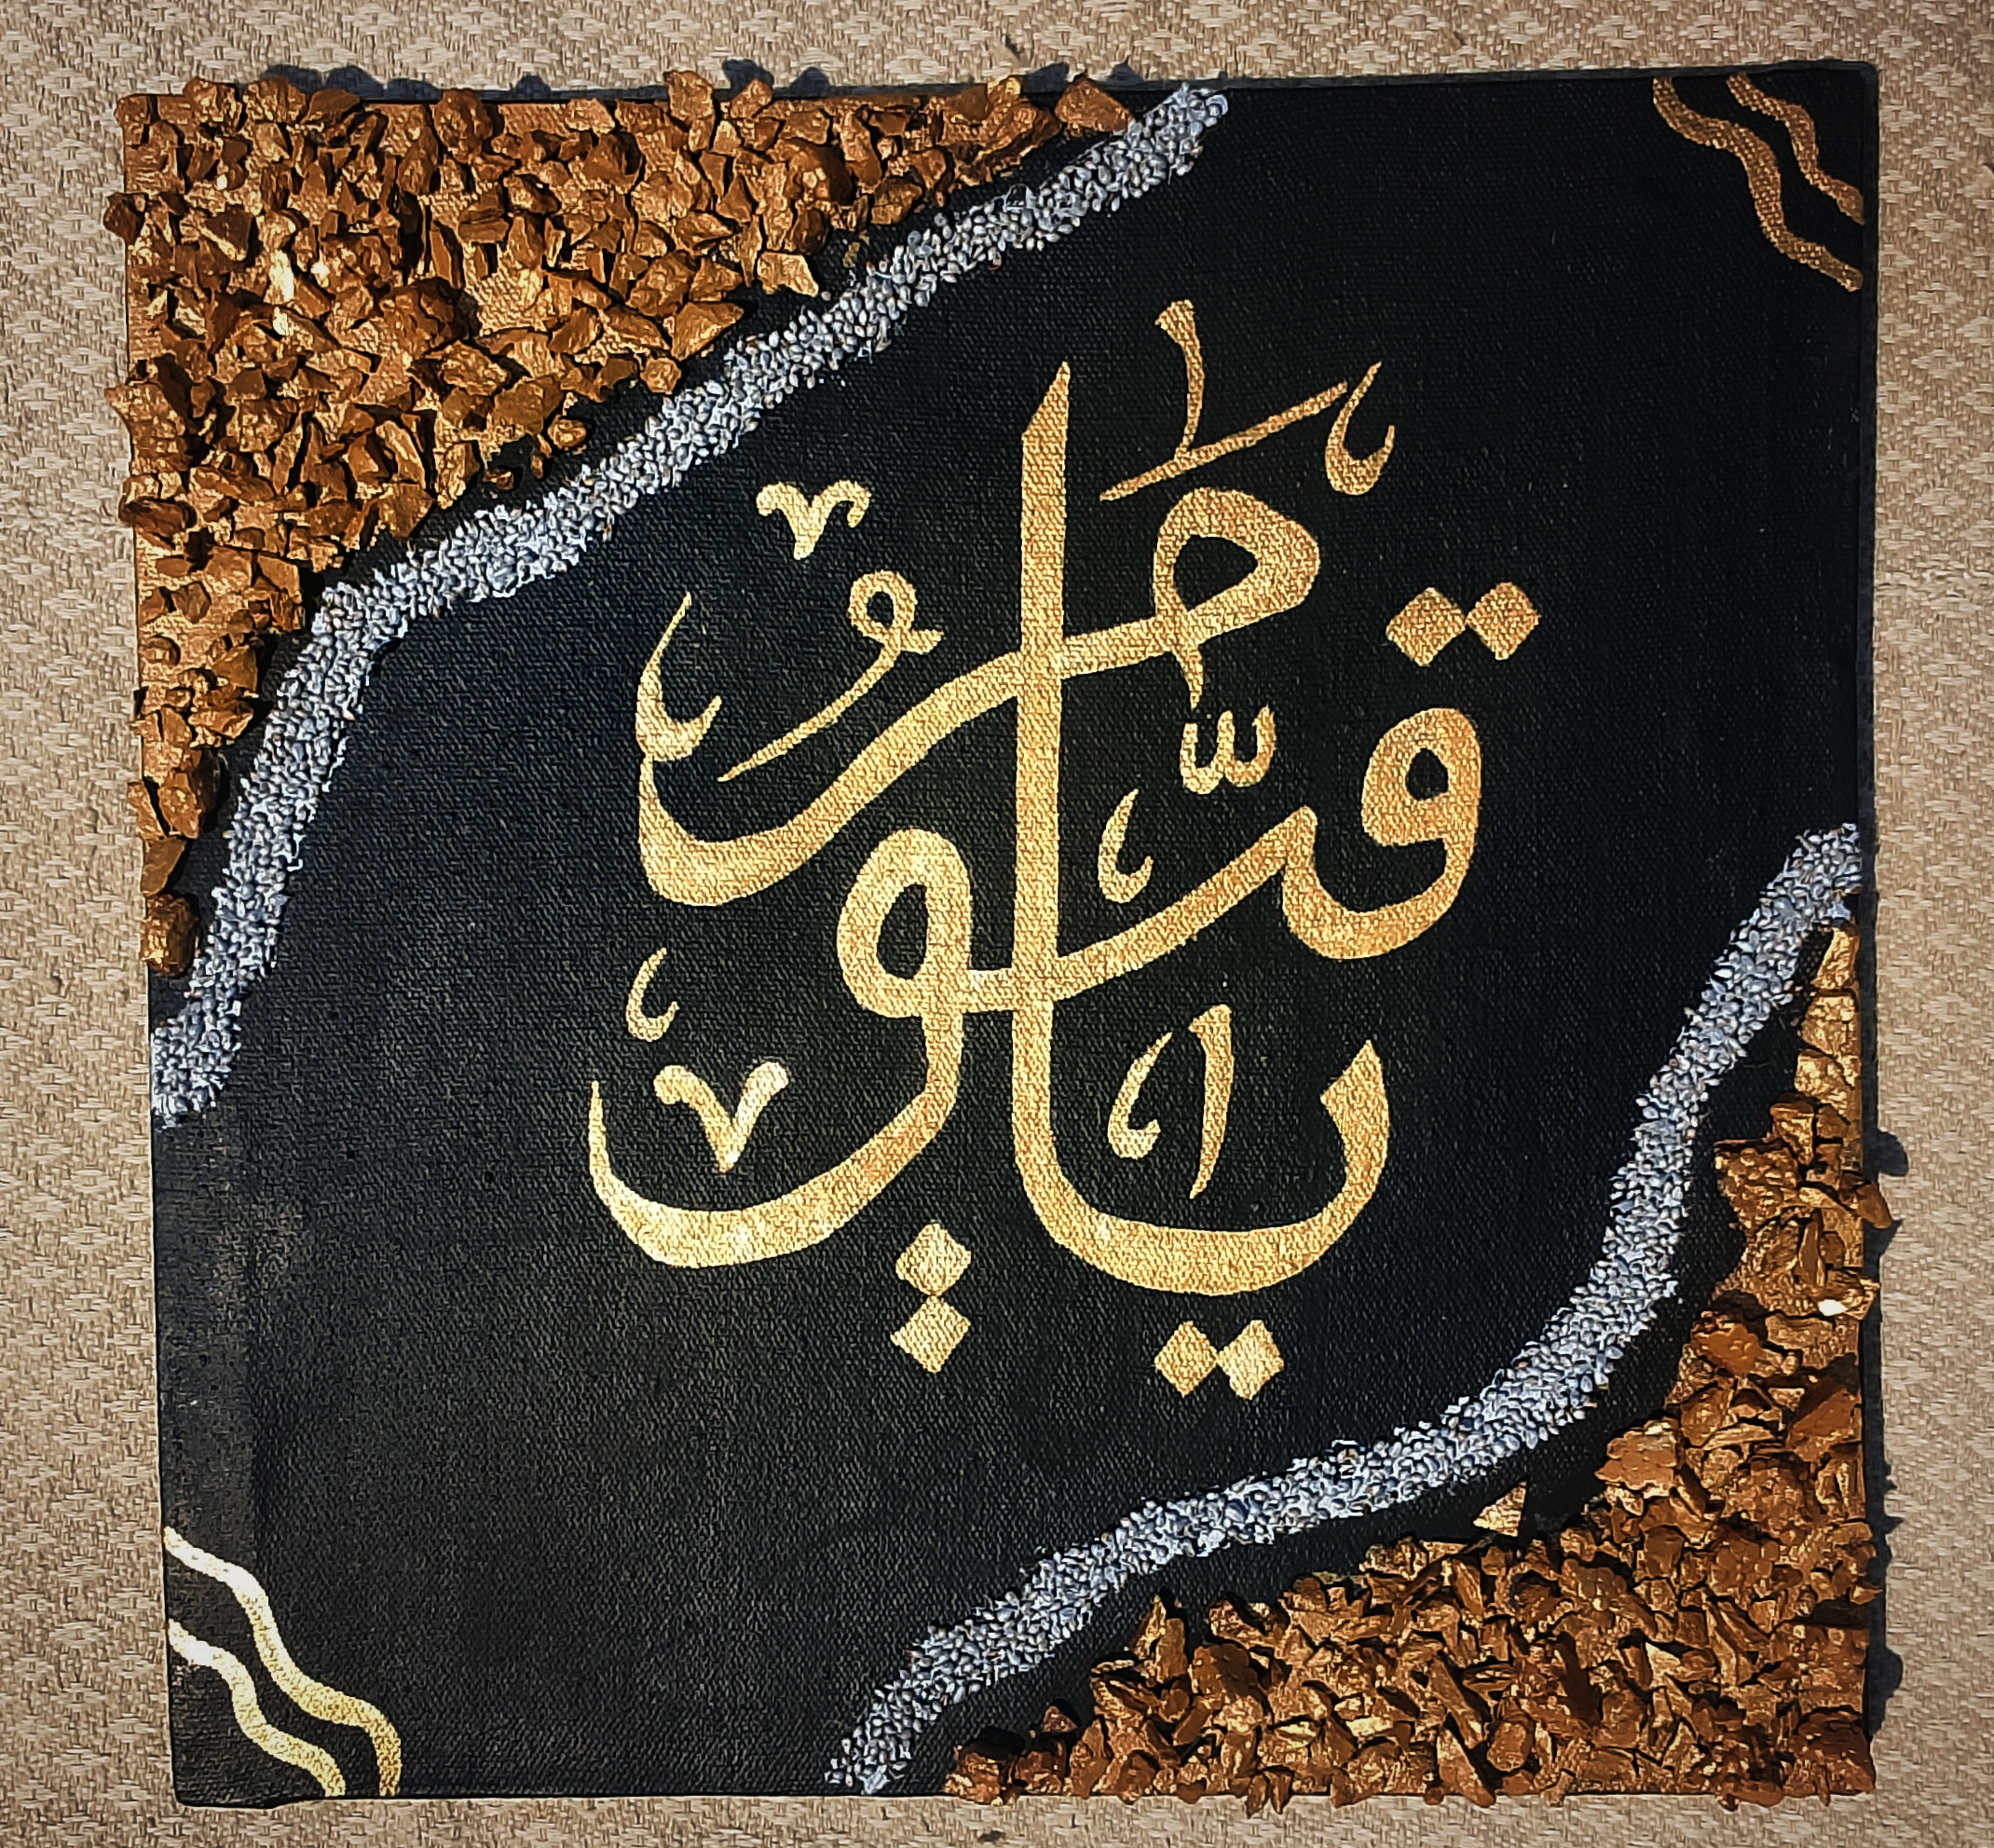 يَا قَيُّومُ